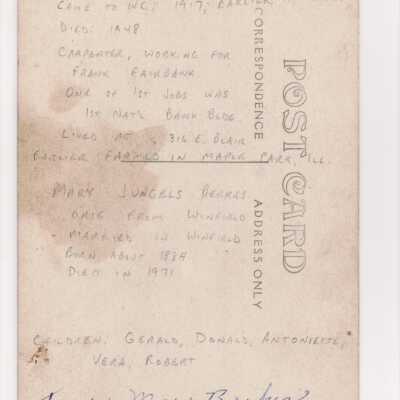 CAME TO W.C. 1917; EARLIER
DIED: 1948
CARPENTER, WORKING FOR
FRANK FAIRBANK
ONE OF 1ST JOBS WAS
1ST NAT'L BANK BLDG.
LIVED AT 316 E. BLAIR
EARLIER FARMED IN MAPLE PARK, ILL.
MARY JUNGELS BERKES
CAME FROM WINFIELD
MARRIED IN WINFIELD
BORN ABOUT 1884
DIED IN 1971
CHILDREN: GERALD, DONALD, ANTONIETTE,
VERA, ROBERT
Mary
POST CARD
CORRESPONDENCE
ADDRESS ONLY